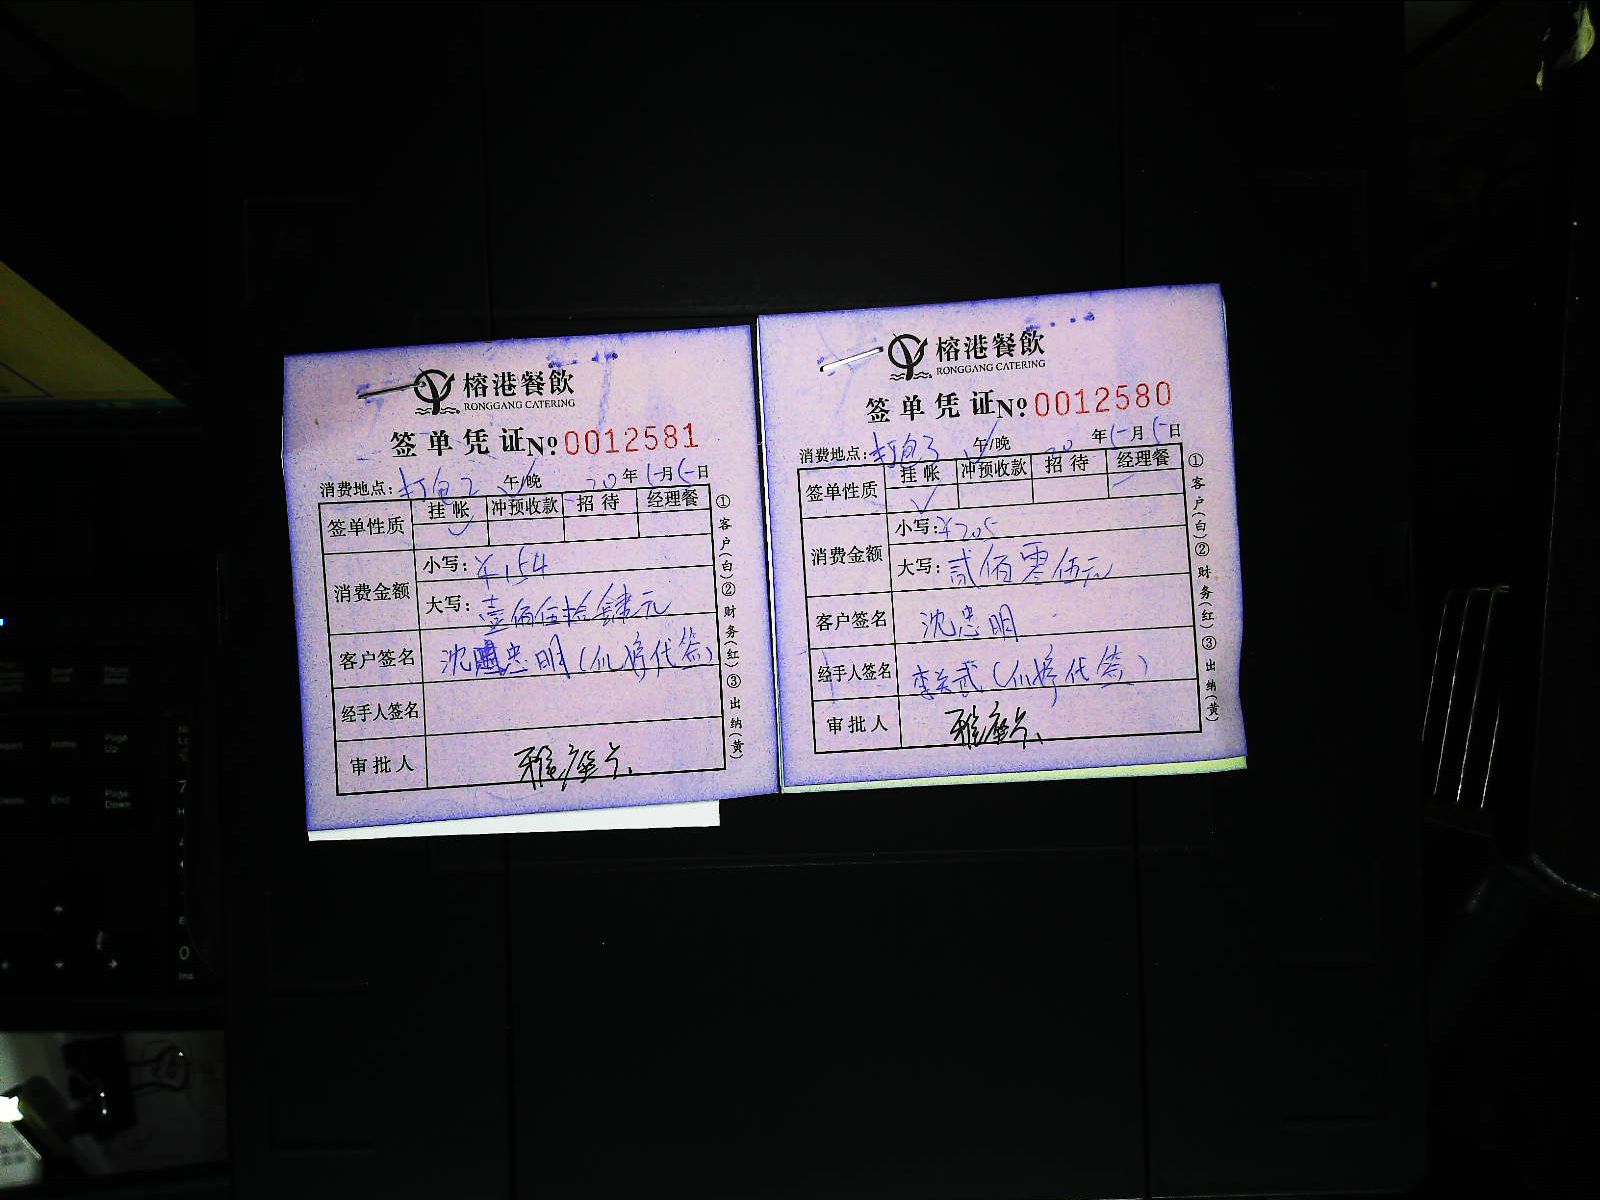 榕港餐飲
RONGGANG CATERING
签单凭证 № 0012581
消费地点: 打包2 午/晚 20年 月 日
签单性质 挂帐 冲预收款 招待 经理餐
消费金额 小写: ¥154
大写: 壹佰伍拾肆元
客户签名 沈忠明(代签)
经手人签名
审批人
①客户(白)②财务(红)③出纳(黄)
榕港餐飲
RONGGANG CATERING
签单凭证 № 0012580
消费地点: 打包3 午/晚 20年 月 日
签单性质 挂帐 冲预收款 招待 经理餐
消费金额 小写: ¥205
大写: 贰佰零伍元
客户签名 沈忠明
经手人签名 (代签)
审批人
①客户(白)②财务(红)③出纳(黄)
Home
Page Up
End
Page Down